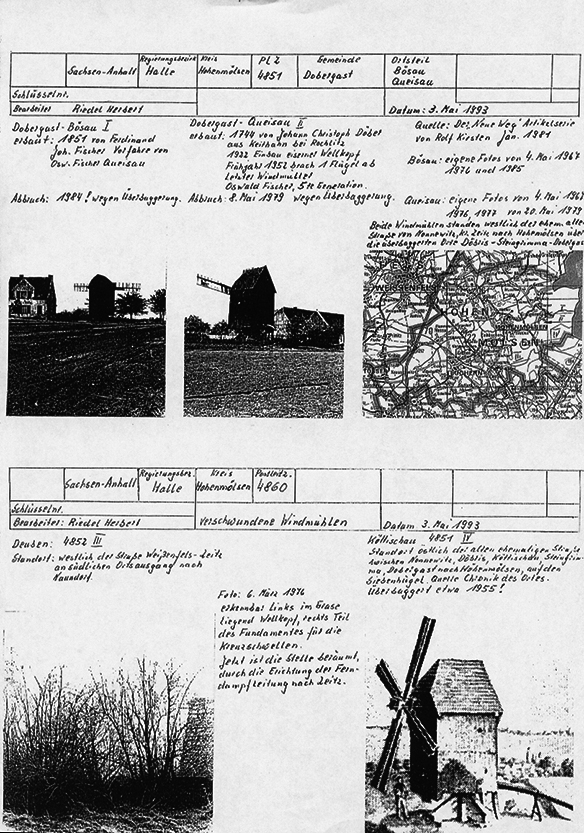 Regierungsbezirk Kreis PLZ Gemeinde Ortsteil
Sachsen-Anhalt Halle Hohenmölsen 4851 Dobergast Bösau
Queisau
Schlüsselnr.
Bearbeitet Riedel Herbert Datum: 3. Mai 1993
Dobergast-Bösau I
erbaut: 1851 von Ferdinand
Joh. Fischer Vorfahre von
Osw. Fischer Queisau
Abbruch: 1984! wegen Überbaggerung.
Dobergast - Queisau II
erbaut: 1744 von Johann Christoph Döbel
aus Keithahn bei Rochlitz
1922 Einbau eiserner Wellkopf
Frühjahr 1952 brach 1 Flügel ab
letzter Windmüller
Oswald Fischer, 5te Generation.
Abbruch: 8. Mai 1979 wegen Überbaggerung.
Quelle: Der "Neue Weg" Artikelserie
von Rolf Kirsten Jan. 1981
Bösau: eigene Fotos von 4. Mai 1967
1976 und 1985
Queisau: eigene Fotos von 4. Mai 1967
1976, 1977 von 20. Mai 1979
Beide Windmühlen standen westlich der ehem. alten
Straße von Nonnewitz, Kr. Zeitz nach Hohenmölsen über
die überbaggerten Orte Döbris - Steingrimma - Dobergast
WEISSENFELS
HOHENMÖLSEN
Regierungsbez. Kreis Postleitz.
Sachsen-Anhalt Halle Hohenmölsen 4860
Schlüsselnr.
Bearbeiter: Riedel Herbert verschwundene Windmühlen Datum 3. Mai 1993
Deuben: 4852 III
Standort: westlich der Straße Weißenfels-Zeitz
an südlichen Ortsausgang nach
Naundorf.
Foto: 6. März 1976
erkennbar Links im Grase
liegend Wellkopf, rechts Teil
des Fundamentes für die
Kreuzschwellen.
Jetzt ist die Stelle beräumt,
durch die Erichtung der Fern-
dampfleitung nach Zeitz.
Köttischau 4851 IV
Standort östlich der alten ehemaligen Straße
zwischen Nonnewitz, Döbris, Köttischau, Steingrim-
ma, Dobergast nach Hohenmölsen, auf den
Siebenhügel. Quelle Chronik des Ortes.
Überbaggert etwa 1955!